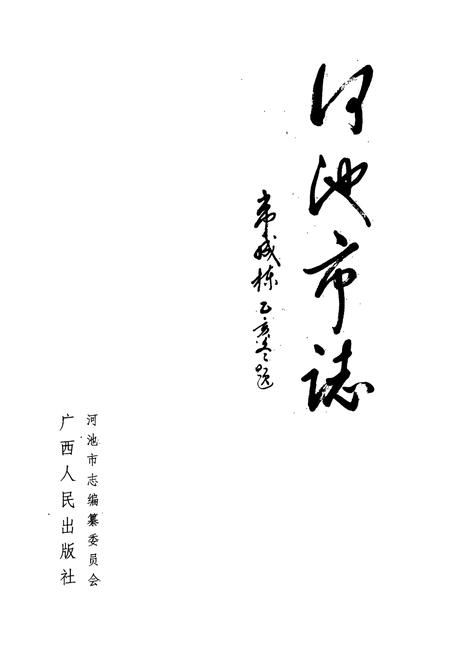 河池市誌
韦成栋乙亥冬题
河池市志编纂委员会
广西人民出版社